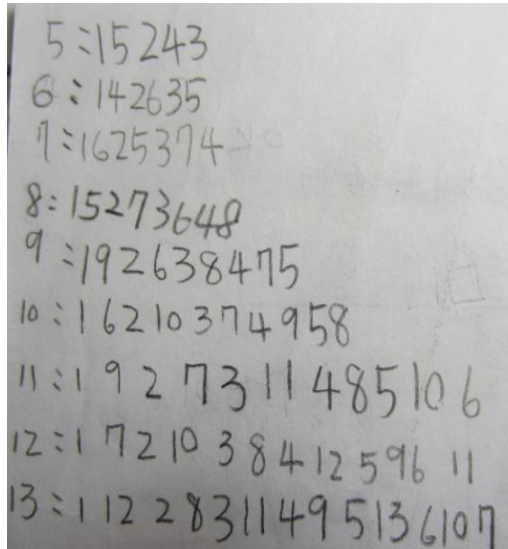 5:15243
6:142635
7:1625374
8:15273648
9:192638475
10:1 6 2 10 3 7 4 9 5 8
11:1 9 2 7 3 11 4 8 5 10 6
12:1 7 2 10 3 8 4 12 5 9 6 11
13:1 12 2 8 3 11 4 9 5 13 6 10 7